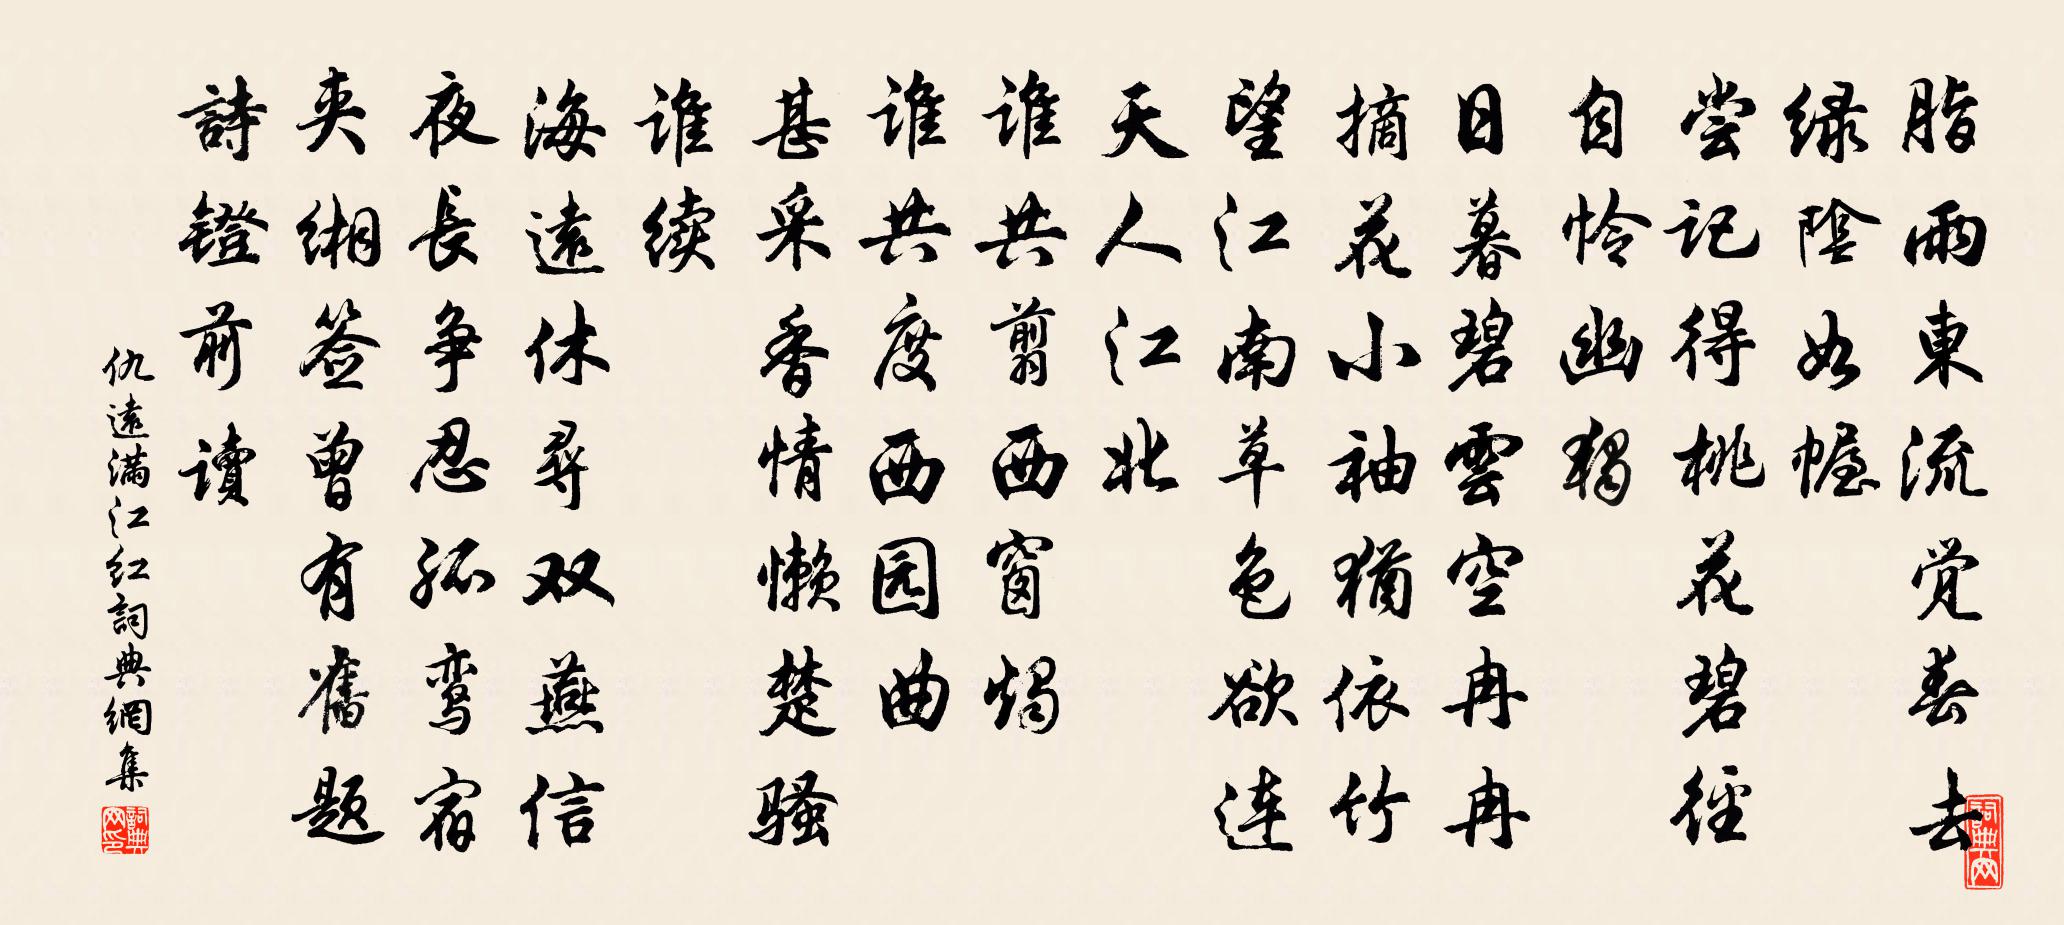 脂雨東流觉春去
绿陰如幄
尝记得桃花碧径
自怜幽独
日暮碧雲空冉冉
摘花小袖犹依竹
望江南草色欲连
天人江北
谁共剪西窗烛
谁共度西园曲
甚采香情懒楚骚
谁续
海遠休尋双燕信
夜長争忍孤鸾宿
夹缃签曾有舊题
詩镫前讀
仇遠满江红詞典網集
詞典网
詞典网印